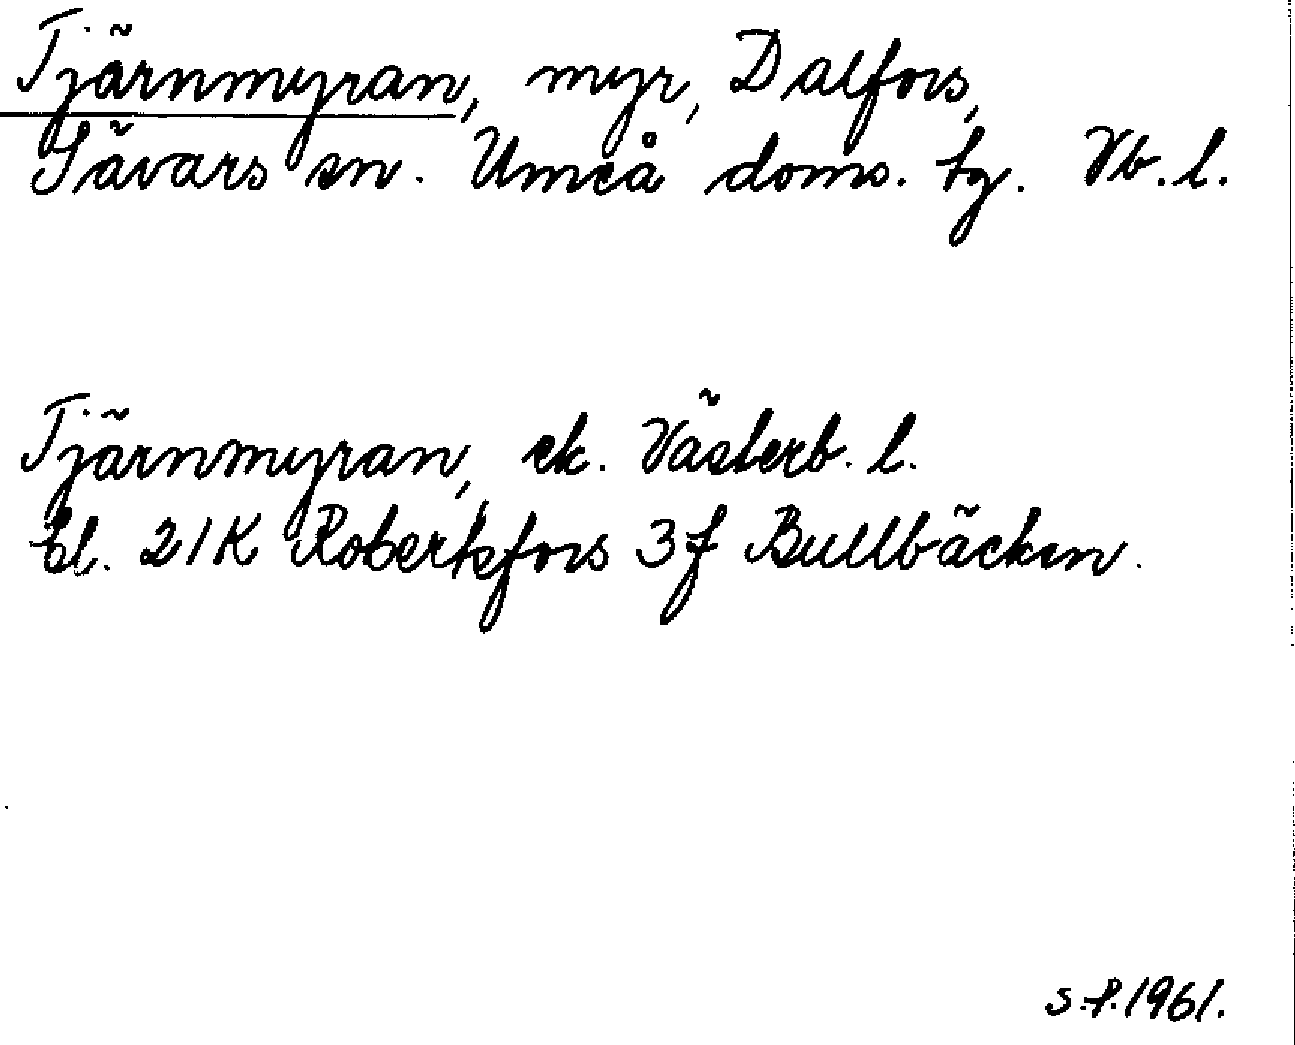 Tjärnmyran, myr, Dalfors,
Sävars sn. Umeå doms. tg. Vb. l.
Tjärnmyran, ek. Västerb. l.
bl. 21K Robertsfors 3f Bullbäcken.
S.f. 1961.